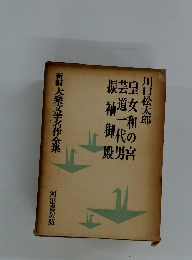 川口松太郎
皇女和の宮
芸道一代男
振袖御殿
新編大衆文学名作全集
河出書房版